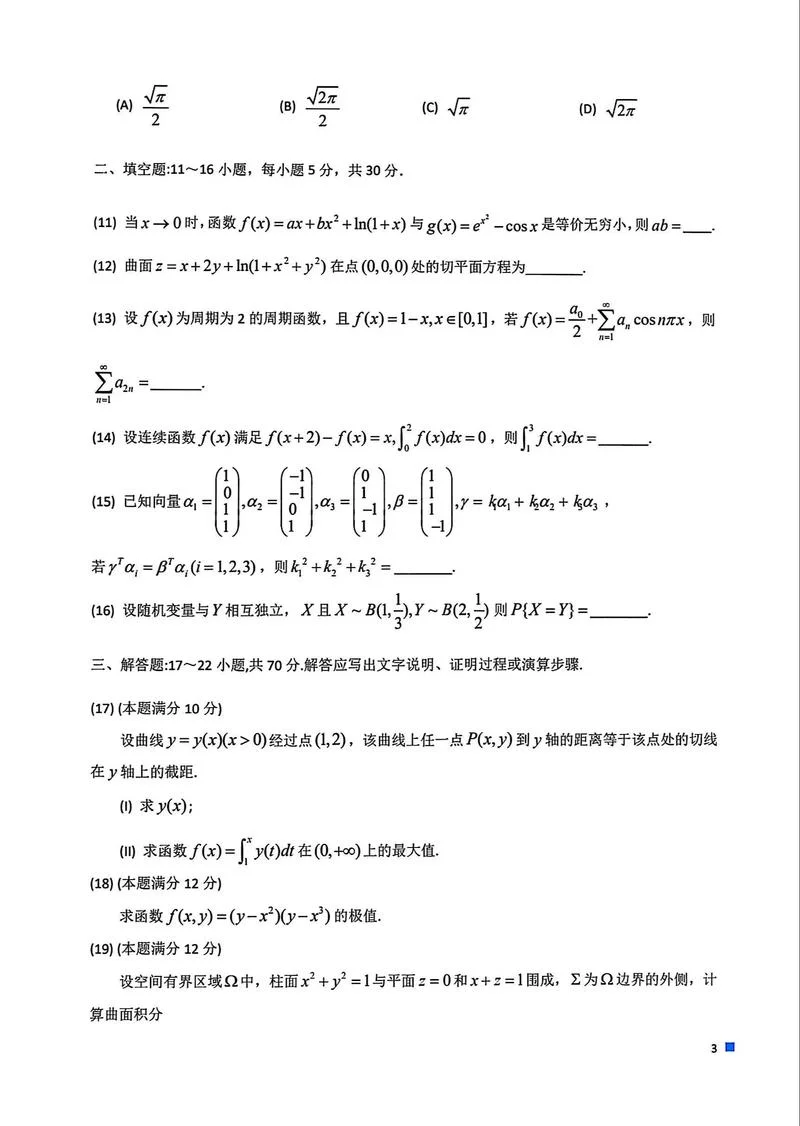 (A) $\frac{\sqrt{\pi}}{2}$ (B) $\frac{\sqrt{2\pi}}{2}$ (C) $\sqrt{\pi}$ (D) $\sqrt{2\pi}$
二、填空题:11～16 小题，每小题 5 分，共 30 分.
(11) 当 $x \to 0$ 时,函数 $f(x)=ax+bx^2+\ln(1+x)$ 与 $g(x)=e^{x^2}-\cos x$ 是等价无穷小,则 $ab=$____.
(12) 曲面 $z=x+2y+\ln(1+x^2+y^2)$ 在点 $(0,0,0)$ 处的切平面方程为________.
(13) 设 $f(x)$ 为周期为 2 的周期函数，且 $f(x)=1-x,x\in[0,1]$，若 $f(x)=\frac{a_0}{2}+\sum_{n=1}^{\infty}a_n\cos n\pi x$，则
$\sum_{n=1}^{\infty}a_{2n}=$_______.
(14) 设连续函数 $f(x)$ 满足 $f(x+2)-f(x)=x,\int_0^2 f(x)dx=0$，则 $\int_1^3 f(x)dx=$_______.
(15) 已知向量 $\alpha_1=\begin{pmatrix}1\\0\\1\\1\end{pmatrix},\alpha_2=\begin{pmatrix}-1\\-1\\0\\1\end{pmatrix},\alpha_3=\begin{pmatrix}0\\1\\-1\\1\end{pmatrix},\beta=\begin{pmatrix}1\\1\\1\\-1\end{pmatrix},\gamma=k_1\alpha_1+k_2\alpha_2+k_3\alpha_3$，
若 $\gamma^T\alpha_i=\beta^T\alpha_i(i=1,2,3)$，则 $k_1^2+k_2^2+k_3^2=$________.
(16) 设随机变量与 $Y$ 相互独立， $X$ 且 $X\sim B(1,\frac{1}{3}),Y\sim B(2,\frac{1}{2})$ 则 $P\{X=Y\}=$________.
三、解答题:17～22 小题,共 70 分.解答应写出文字说明、证明过程或演算步骤.
(17) (本题满分 10 分)
设曲线 $y=y(x)(x>0)$ 经过点 $(1,2)$，该曲线上任一点 $P(x,y)$ 到 $y$ 轴的距离等于该点处的切线
在 $y$ 轴上的截距.
(I) 求 $y(x)$;
(II) 求函数 $f(x)=\int_1^x y(t)dt$ 在 $(0,+\infty)$ 上的最大值.
(18) (本题满分 12 分)
求函数 $f(x,y)=(y-x^2)(y-x^3)$ 的极值.
(19) (本题满分 12 分)
设空间有界区域 $\Omega$ 中，柱面 $x^2+y^2=1$ 与平面 $z=0$ 和 $x+z=1$ 围成，$\Sigma$ 为 $\Omega$ 边界的外侧，计
算曲面积分
3